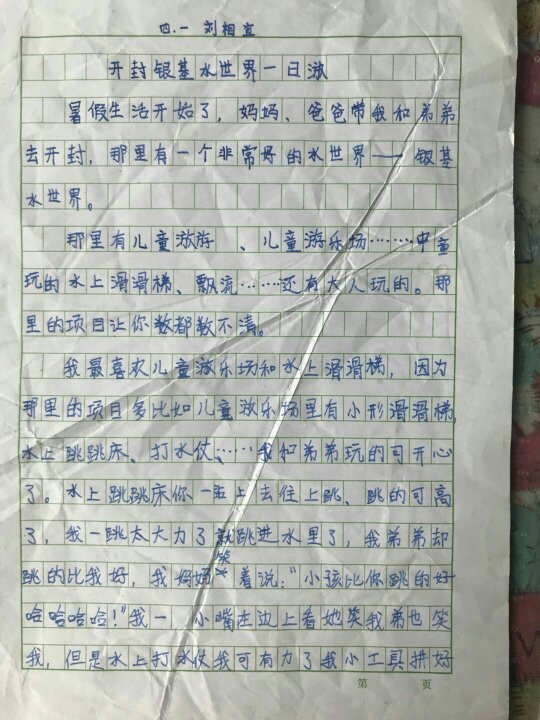 四.一 刘相宜
开封银基水世界一日游
暑假生活开始了，妈妈、爸爸带我和弟弟
去开封，那里有一个非常好的水世界——银基
水世界。
那里有儿童游游、儿童游乐场……中童
玩的水上滑滑梯、飘流……还有大人玩的。那
里的项目让你数都数不清。
我最喜欢儿童游乐场和水上滑滑梯，因为
那里的项目多比如儿童游乐场里有小形滑滑梯，
水上跳跳床、打水仗、……我和弟弟玩的可开心
了。水上跳跳床你一上去往上跳、跳的可高
了，我一跳太大力了就跳进水里了，我弟弟却
跳的比我好，我妈妈笑着说：“小孩比你跳的好
哈哈哈哈！”我一 小嘴在边上看她笑我弟也笑
我，但是水上打水仗我可有力了我小工具拼好
第 页